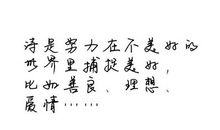 诗是努力在不美好的
世界里捕捉美好，
比如善良、理想、
爱情……